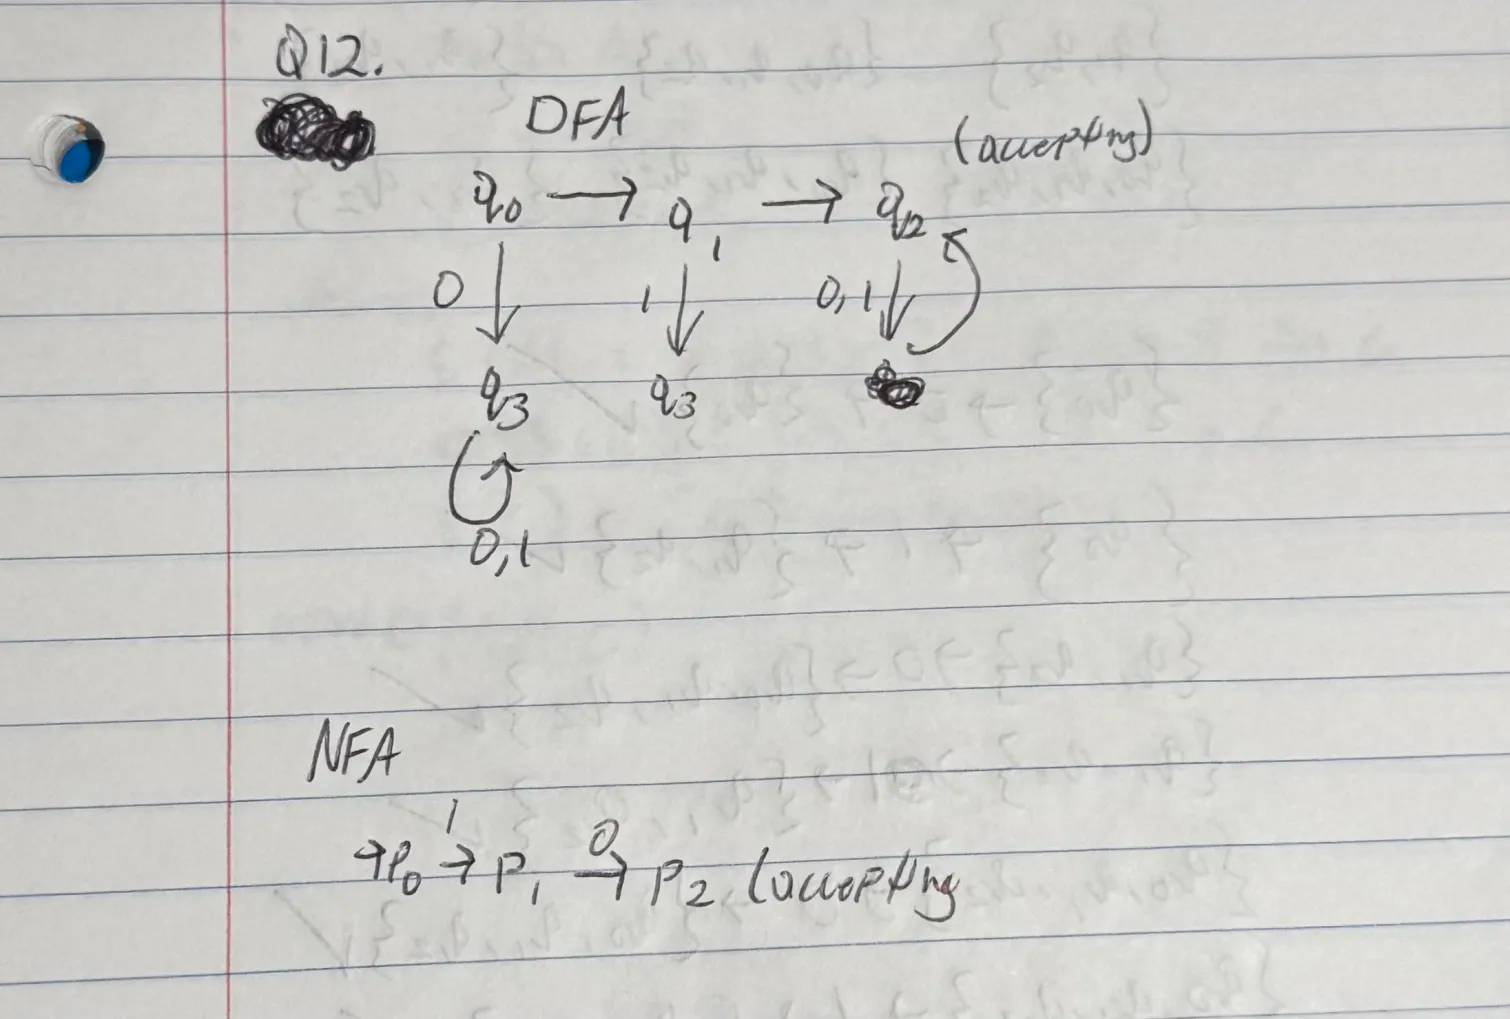 Q12.
DFA
(accepting)
q0 → q1 → q2
0 ↓ 1 ↓ 0,1 ↓
q3 q3
0,1
NFA
1 0
→P0 → P1 → P2 (accepting